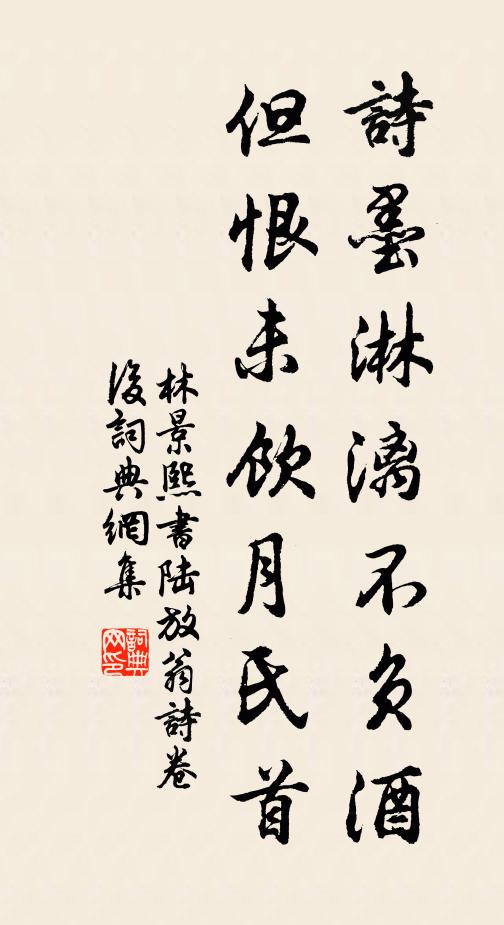 詩墨淋漓不负酒
但恨未飲月氏首
林景熙書陆放翁詩卷
後詞典網集
詞典
网印